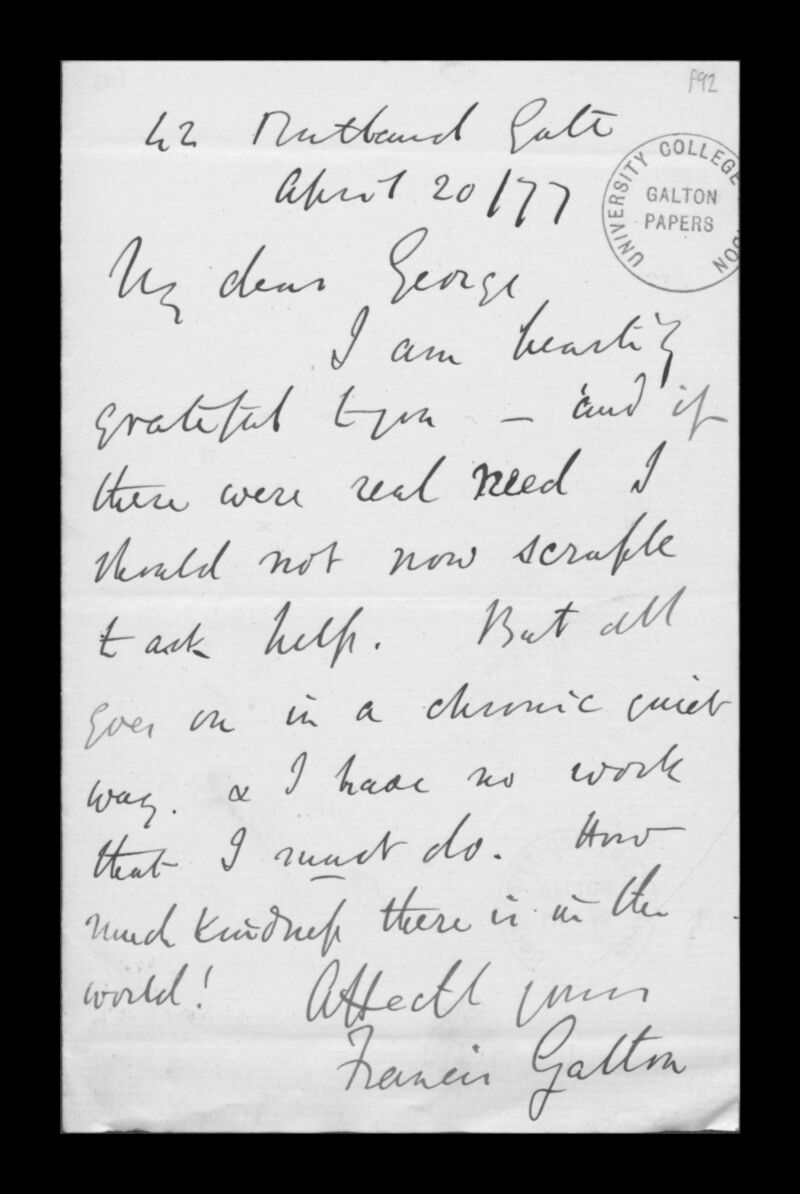 f92
42 Rutland Gate
April 20/77
UNIVERSITY COLLEGE
GALTON
PAPERS
My dear George
I am heartily
grateful to you – and if
there were real need I
should not now scruple
to ask help. But all
goes on in a chronic quiet
way. & I have no work
that I must do. How
much kindness there is in the
world! Affectly yours
Francis Galton